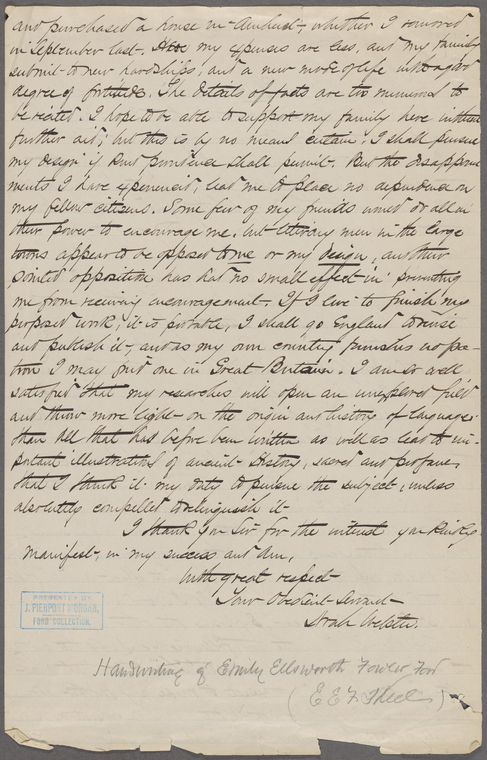 and purchased a house in Amherst, whither I removed
in September last. Here my expenses are less, and my family
submit to new hardships, and a new mode of life with a good
degree of fortitude. The details of facts are too numerous to
be recited. I hope to be able to support my family here without
further aid; but this is by no means certain. I shall pursue
my design if kind providence shall permit. But the disappoint
ments I have experienced, lead me to place no dependence on
my fellow citizens. Some few of my friends aimed to all in
their power to encourage me, but literary men in the large
towns appear to be opposed to me or my design, and their
pointed opposition has had no small effect in preventing
me from receiving encouragement. If I live to finish my
proposed work, it is probable, I shall go England to revise
and publish it, and as my own country furnishes no pa-
tron I may find one in Great Britain. I am so well
satisfied that my researches will open an unexplored field
and throw more light on the origin and history of languages
than all that has before been written as well as lead to im-
portant illustrations of ancient History, sacred and profane,
that I think it my duty to pursue the subject, unless
absolutely compelled to relinquish it
I thank you Sir for the interest you kindly
manifest, in my success and am,
With great respect
Your Obedient Servant
Noah Webster.
PRESENTED BY
J. PIERPONT MORGAN,
FORD COLLECTION.
Handwriting of Emily Ellsworth Fowler Ford
(E E F